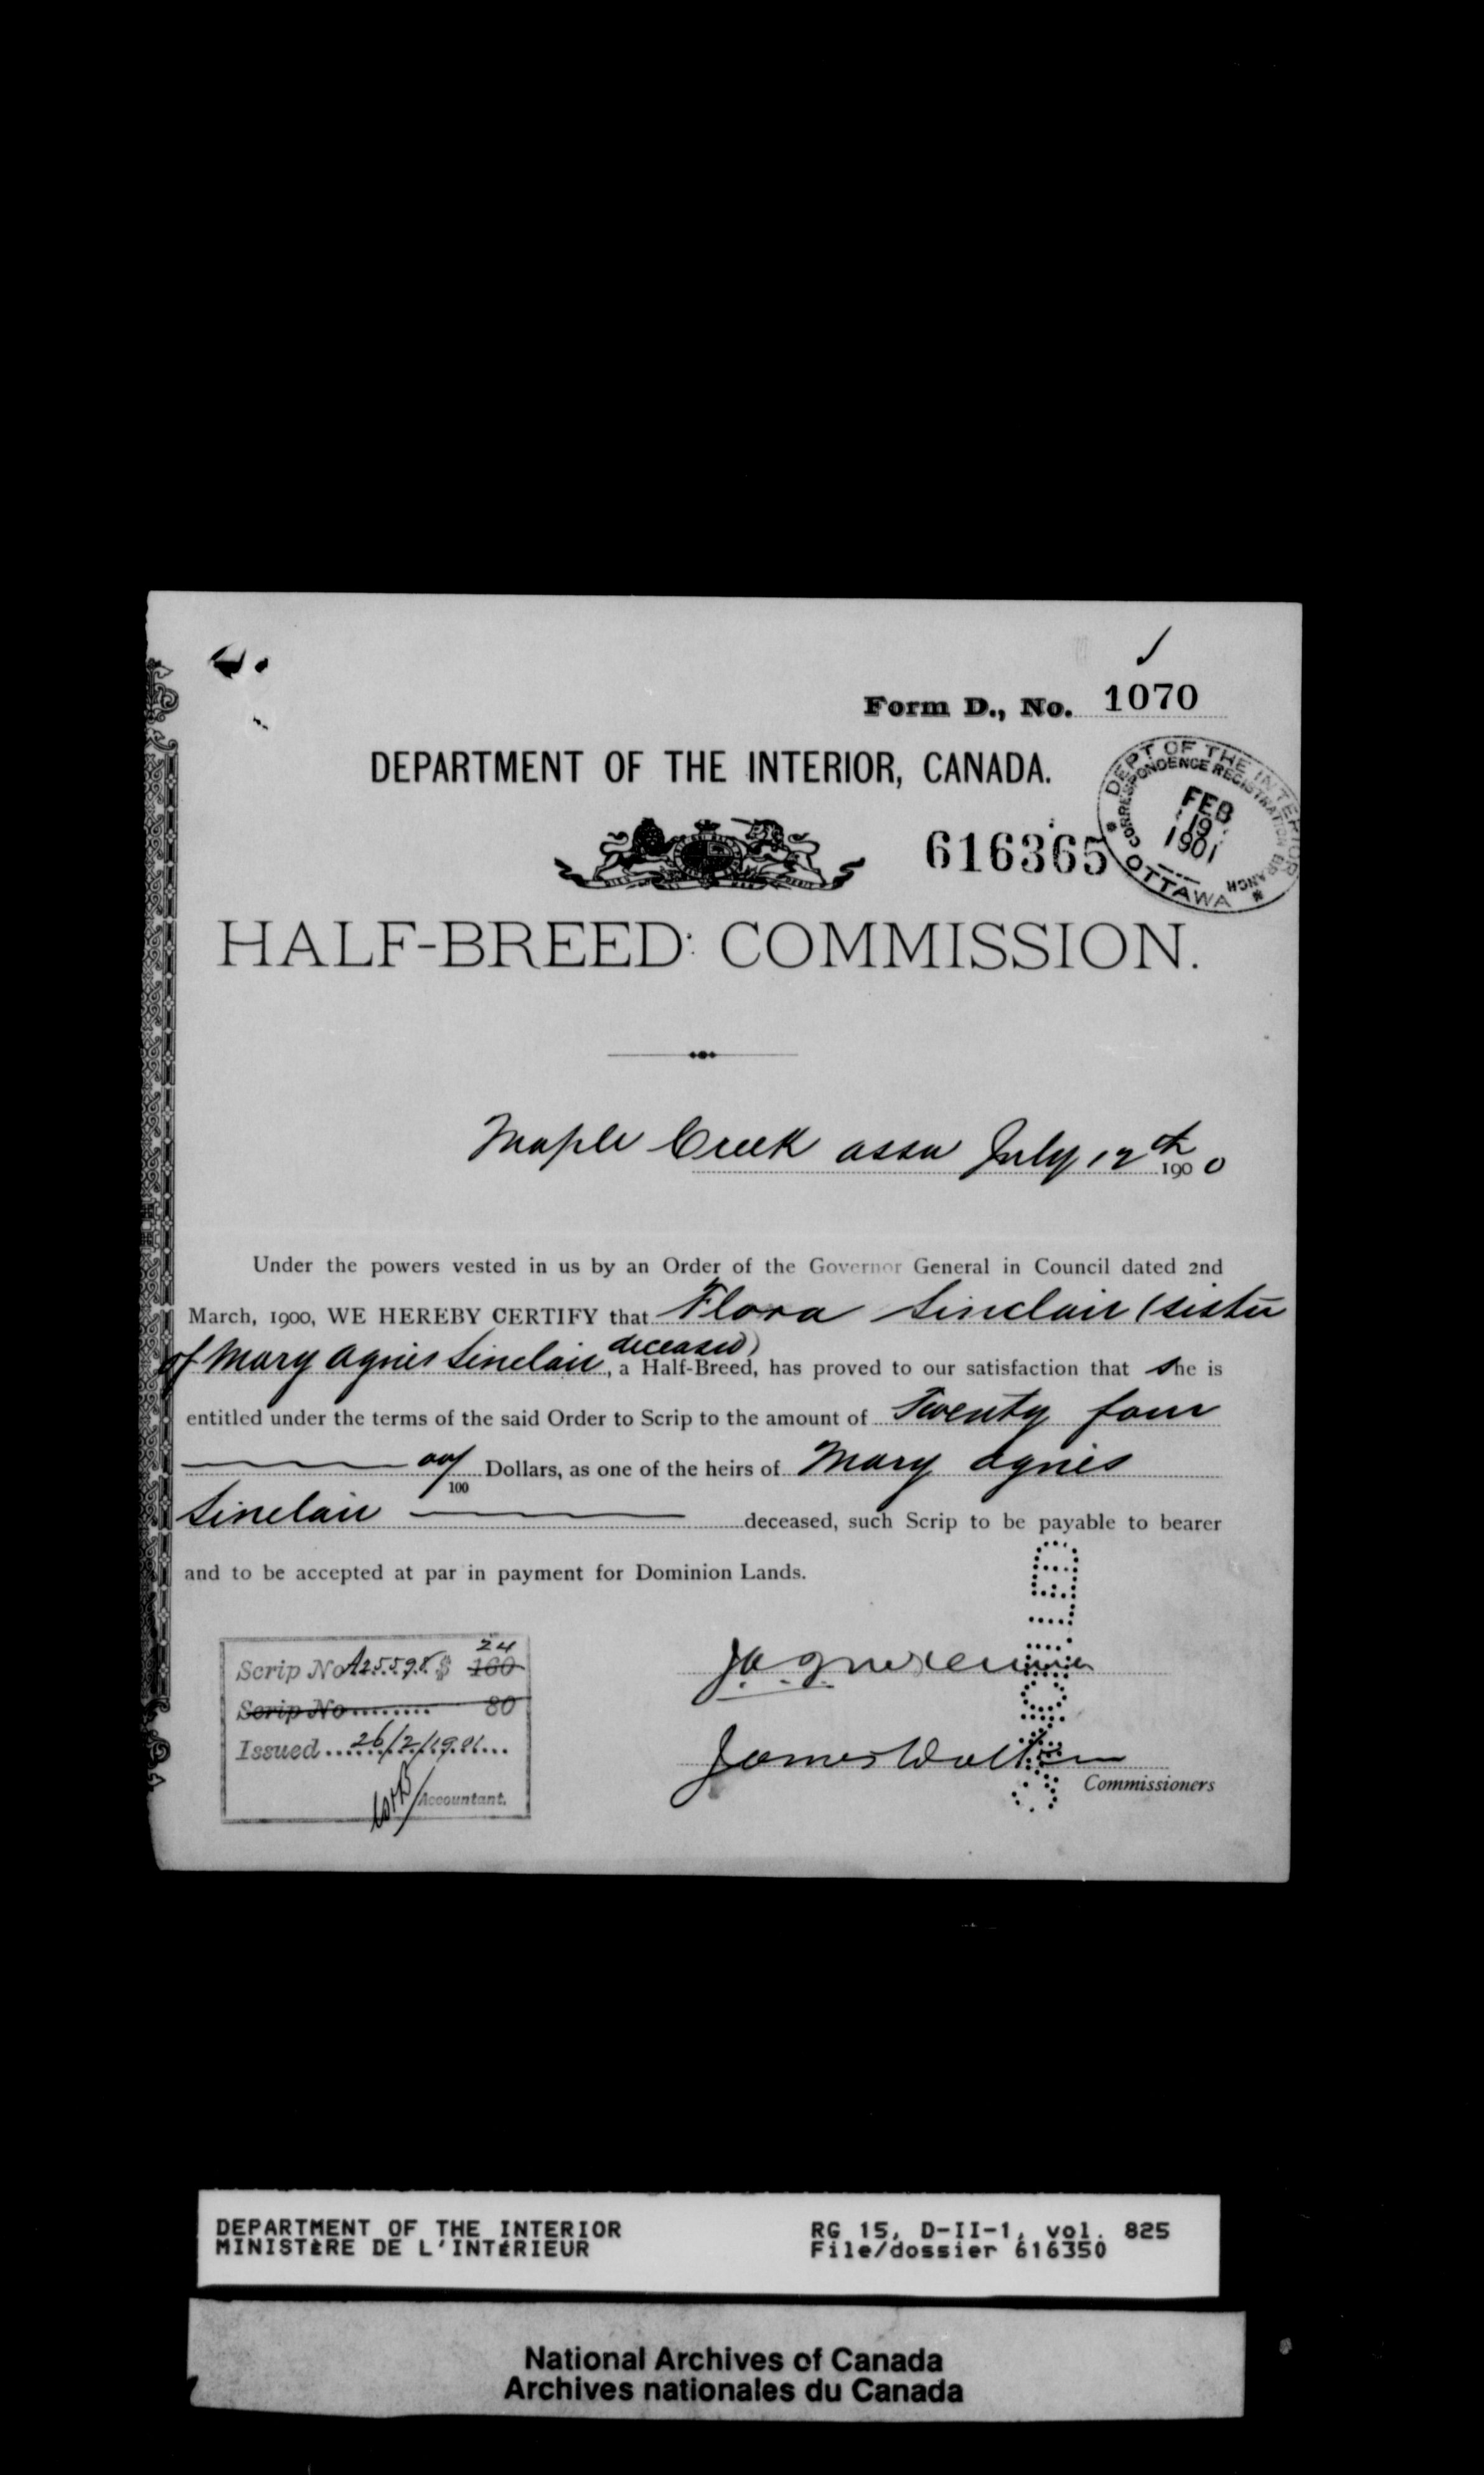 Form D., No. 1070
DEPARTMENT OF THE INTERIOR, CANADA.
DEPT OF THE INTERIOR
CORRESPONDENCE REGISTRATION BRANCH
FEB
19
1901
OTTAWA
616365
HALF-BREED COMMISSION.
Maple Creek Assa July 12th 1900
Under the powers vested in us by an Order of the Governor General in Council dated 2nd
March, 1900, WE HEREBY CERTIFY that Flora Sinclair (sister
of Mary Agnes Sinclair, deceased) a Half-Breed, has proved to our satisfaction that she is
entitled under the terms of the said Order to Scrip to the amount of Twenty four
00/100 Dollars, as one of the heirs of Mary Agnes
Sinclair deceased, such Scrip to be payable to bearer
and to be accepted at par in payment for Dominion Lands.
24
Scrip No A25598 $ 160
Scrip No ........ 80
Issued 26/2/1901
Accountant.
James Walker
Commissioners
DEPARTMENT OF THE INTERIOR RG 15, D-II-1, vol. 825
MINISTÈRE DE L'INTÉRIEUR File/dossier 616350
National Archives of Canada
Archives nationales du Canada